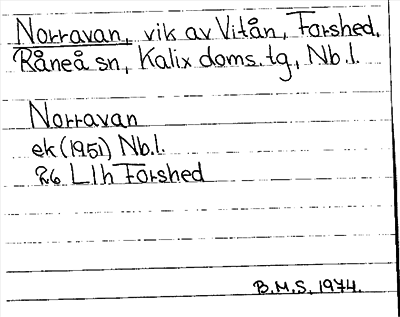 Norravan, vik av Vitån, Forshed,
Råneå sn, Kalix doms.tg, Nb.l.
Norravan
ek (1951) Nb.l.
26 L1h Forshed
B.M.S. 1974.